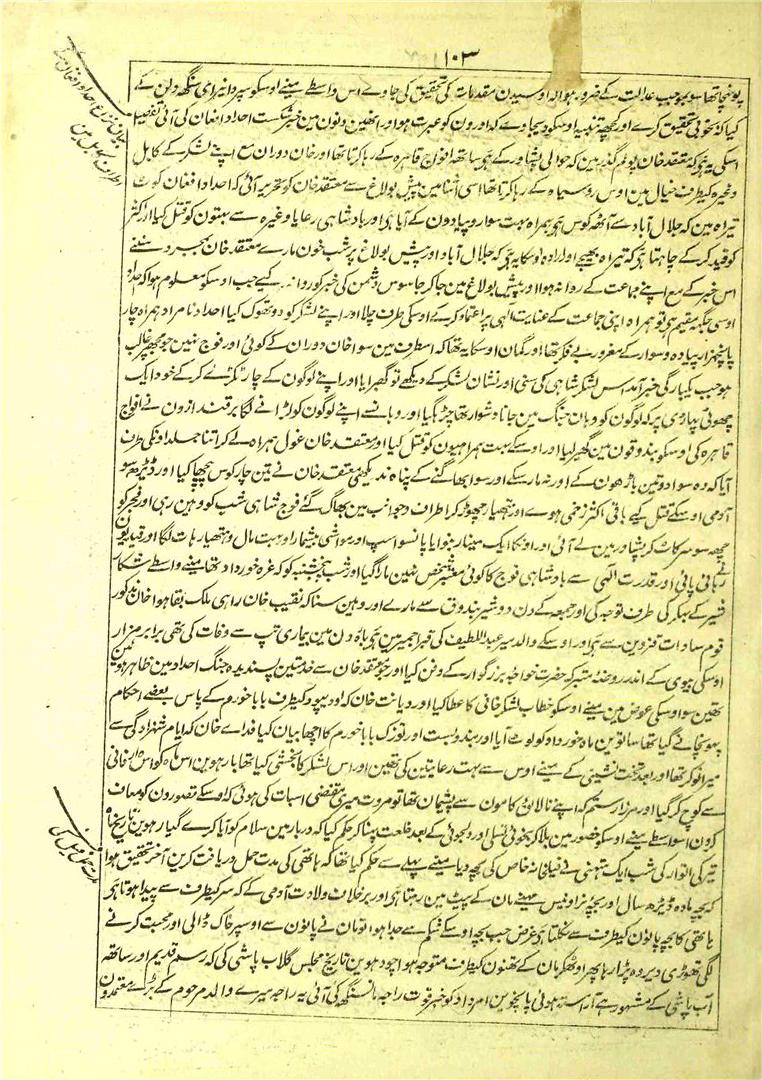 ۱۰۳
پونچا تھا سو بموجب عدالت کے ضرور ہوا کہ اوسیدن مقدمات کی تحقیق کی جاوے اس واسطے مینے اوسکو سپرد انیرای سنگہ دلن کے
کیا کہ بخوبی تحقیق کرے اور کچھ تنبیہ اوسکو دیجاوے کہ اورون کو عبرت ہو اور انھین دنون مین خبر شکست احداد افغان کی آئی تفصیل
اسکی یہ ہی کہ معتقد خان پولم گذر مین کہ حوالی پشاور کے ہی ساتھ افواج قاہرہ کے رہا کرتا تھا اور خان دوران مع اپنے لشکر کے کابل
وغیرہ کیطرف خیال مین اوس روسیاہ کے رہا کرتا تھا اسی اثنا مین پیش بولاغ سے معتقد خان کو تحریر آئی کہ احداد افغان کوٹ
تیراہ مین کہ جلال آباد سے آٹھ کوس ہی ہمراہ بہت سوار و پیادون کے آیا ہی اور بادشاہی رعایا وغیرہ سے بہتون کو قتل کیا اور اکثر
کو قید کرکے چاہتا ہی کہ تیراہ بھیجے اور ارادہ اوسکا یہ ہی کہ جلال آباد اور پیش بولاغ پر شب خون مارے معتقد خان مجرد سننے
اس خبر کے مع اپنے جماعت کے روانہ ہوا اور پیش بولاغ مین جاکر جاسوس دشمن کی خبر کو روانہ کیے جب اوسکو معلوم ہوا کہ احداد
اوسی جگہ مقیم ہی تو ہمراہ اپنی جماعت کے عنایت الہی پر اعتماد کرکے اوسکی طرف چلا اور اپنے لشکر کو دو تھوک کیا احداد نامراد ہمراہ چار
پانچہزار پیادہ و سوار کے مغرور بے فکر تھا اور گمان اوسکا یہ تھا کہ اسطرف مین سوا خان دوران کے کوئی اور فوج نہین جو مجھپر غالب
ہو جب یکبارگی خبر آمد اس لشکر شاہی کی سنی اور نشان لشکر کے دیکھے تو گھبرایا اور اپنے لوگون کے چار ٹکڑے کرکے خود ایک
چھوٹی پہاڑی پر کہ لوگون کو وہان جنگ مین جانا دشوار تھا چڑہ گیا اور وہانسے اپنے لوگون کو لڑانے لگا برقندازون نے افواج
قاہرہ کی اوسکو بندوقون مین گھیر لیا اور اوسکے بہت ہمراہیون کو قتل کیا اور معتقد خان غول ہمراہ لے کر اتنا جلد اونکی طرف
آیا کہ وہ سوا دو تین باڑھون کے اور نہ مارسکے اور سوا بھاگنے کے پناہ ندیکھی معتقد خان نے تین چار کوس پیچھا کیا اور ڈیڑھ سو
آدمی اوسکے قتل کیے باقی اکثر زخمی ہوے اور ہتھیار چھوڑ کر اطراف و جوانب مین بھاگ گئے فوج شاہی شب کو وہین رہی اور فجر کو
چھہ سو سر کاٹ کر پشاور مین لے آئی اور اونکا ایک مینار بنوایا پانسو اسپ اور مواشی بیشمار اور بہت مال و ہتھیار ہات لگا اور قیدیون
نے رہائی پائی اور قدرت الہی سے بادشاہی فوج کا کوئی معتبر شخص نہین مارا گیا اور شب پنجشنبہ کو کہ غرہ خورداد تھا مینے واسطے شکار
شیر کے بہکر کی طرف توجہ کی اور جمعہ کے دن دو شیر بندوق سے مارے اور وہین سنا کہ نقیب خان راہی ملک بقا ہوا خان مذکور
قوم سادات قزوین سے ہی اور اوسکے والد میر عبد اللطیف کی قبر اجمیر مین ہی باہ دن مین بیماری تپ سے وفات کی تھی برابر مزار
اوسکی بیوی کے اندر روضۂ متبرکہ حضرت خواجہ بزرگوار کے دفن کیا اور جو معتقد خان سے خدمتین پسندیدہ جنگ احداد مین ظاہر ہوئین
تھین سو اوسکی عوض مین مینے اوسکو خطاب لشکر خانی کا عطا کیا اور دیانت خان کہ اودیپور کیطرف بابا خورم کے پاس بعضے احکام
پہونچانے گیا تھا ساتوین ماہ خورداد کو لوٹ آیا اور بندوبست اور توزک بابا خورم کا اچھا بیان کیا فدائے خان کہ ایام شہزادگی سے
میرا نوکر تھا اور بعد تخت نشینی کے مینے اوس سے بہت رعایتین کی تھین اور اس لشکر کا بخشی کیا تھا بارہوین اس ماہ کو اس جہان فانی
سے کوچ کر گیا اور مرزا رستم کہ اپنے نالائق کامون سے پشیمان تھا تو مروت میری مقتضی اسبات کی ہوئی کہ اوسکے قصورون کو معاف
کرون اسواسطے مینے اوسکو حضور مین بلا کر بخوبی تسلی اور دلجوئی کے بعد خلعت پہنا کر حکم کیا کہ دربار مین سلام کو آیا کرے گیارہوین تاریخ ماہ
تیر کی اتوار کی شب ایک ہتنی نے فیلخانہ خاص کی بچہ دیا مینے پہلے سے حکم کیا تھا کہ ہاتھی کی مدت حمل دریافت کرین آخر تحقیق ہوا
کہ بچہ مادہ ڈیڑھ سال اور بچہ نر اونیس مہینے مان کے پیٹ مین رہتا ہی اور برخلاف ولادت آدمی کے کہ سر کیطرف سے پیدا ہوتا ہی
ہاتھی کا بچہ پانون کیطرف سے نکلتا ہی غرض جب بچہ اوسکے شکم سے جدا ہوا تو مان نے پانون سے اوسپر خاک ڈالی اور محبت کرنے
لگی تھوڑی دیر وہ پڑا رہا پھر اوٹھکر مان کے تھنون کیطرف متوجہ ہوا چودہوین تاریخ مجلس گلاب پاشی کی کہ رسم قدیم اور ساتھہ
آب پاشی کے مشہور ہے آراستہ ہوئی پانچوین امرداد کو خبر فوت راجہ مانسنگھ کی آئی یہ راجہ میرے والد مرحوم کے بڑے معتمدون
مدت حمل فیل کی